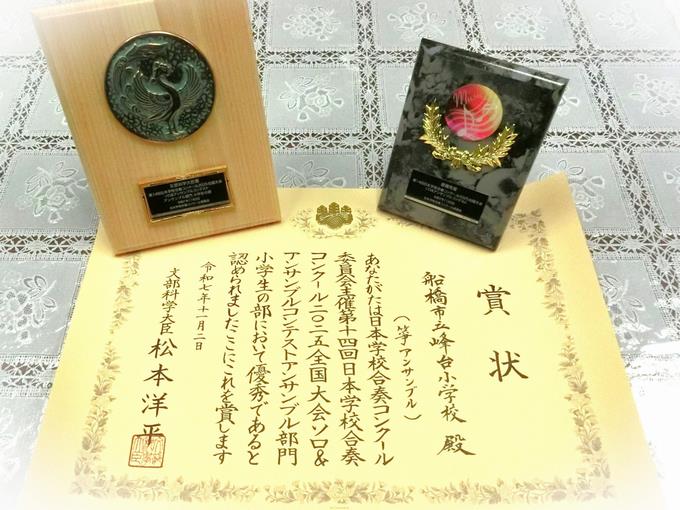 文部科学大臣賞
最優秀賞
Music
賞状
船橋市立峰台小学校 殿
(箏アンサンブル)
あなたがたは日本学校合奏コンクール
委員会主催第十四回日本学校合奏
コンクール二〇二五全国大会ソロ&
アンサンブルコンテストアンサンブル部門
小学生の部において優秀であると
認められましたここにこれを賞します
令和七年十一月二日
文部科学大臣 松本洋平